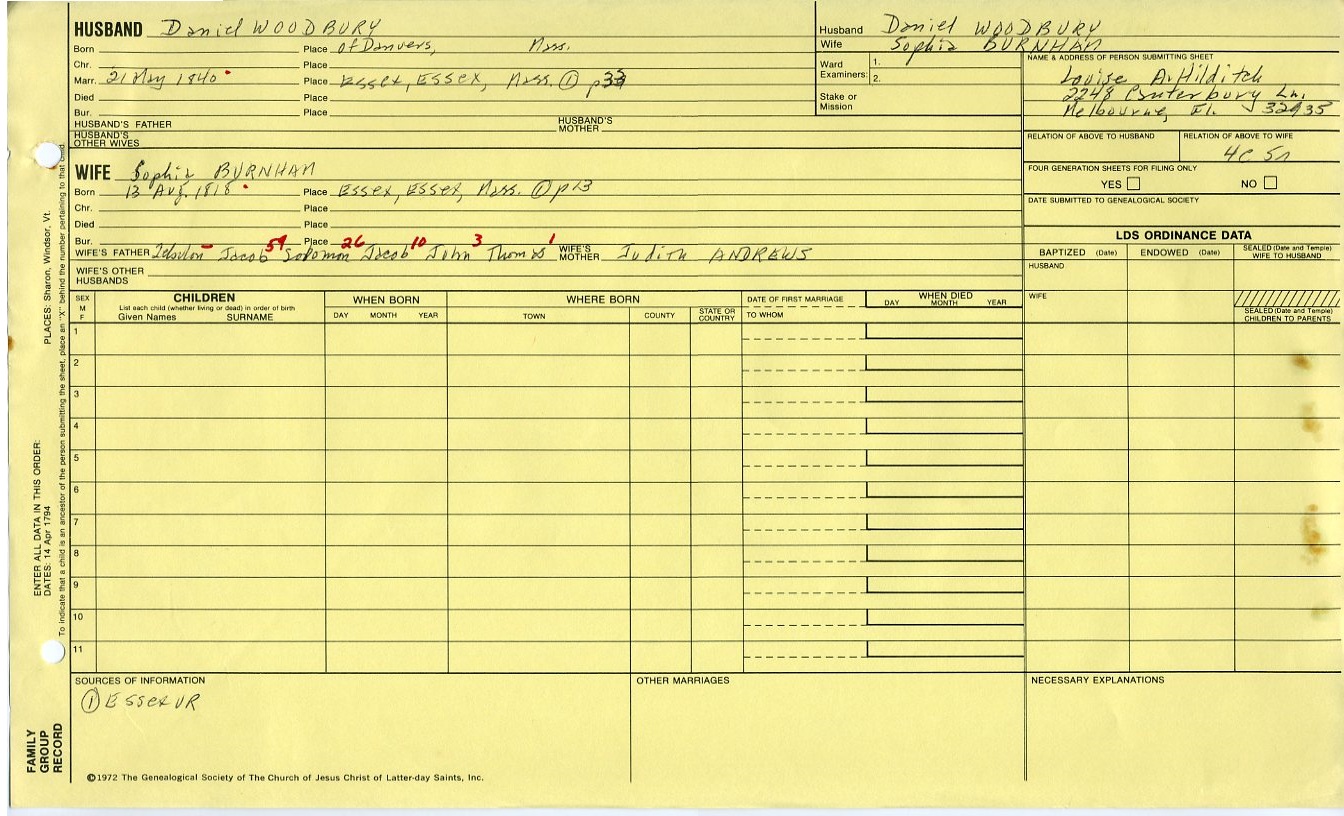 HUSBAND Daniel WOODBURY
Born Place of Danvers, Mass.
Chr. Place
Marr. 21 May 1840 Place Essex, Essex, Mass. ① p
Died Place
Bur. Place
HUSBAND'S FATHER HUSBAND'S MOTHER
HUSBAND'S OTHER WIVES
Husband Daniel WOODBURY
Wife Sophia BURNHAM
Ward Examiners: 1.
2.
Stake or Mission
NAME & ADDRESS OF PERSON SUBMITTING SHEET
Louise A. Hilditch
2248 Canterbury Ln.
Melbourne, Fl. 32935
RELATION OF ABOVE TO HUSBAND RELATION OF ABOVE TO WIFE
4C 5r
FOUR GENERATION SHEETS FOR FILING ONLY
YES NO
DATE SUBMITTED TO GENEALOGICAL SOCIETY
WIFE Sophia BURNHAM
Born 13 Aug. 1818 Place Essex, Essex, Mass. ① p13
Chr. Place
Died Place
Bur. Place
59 26 10 3 1
WIFE'S FATHER Zebulon – Jacob Solomon Jacob John Thomas WIFE'S MOTHER Judith ANDREWS
WIFE'S OTHER HUSBANDS
LDS ORDINANCE DATA
BAPTIZED (Date) ENDOWED (Date) SEALED (Date and Temple) WIFE TO HUSBAND
HUSBAND
WIFE
SEALED (Date and Temple) CHILDREN TO PARENTS
SEX M F
CHILDREN
List each child (whether living or dead) in order of birth
Given Names SURNAME
WHEN BORN
DAY MONTH YEAR
WHERE BORN
TOWN COUNTY STATE OR COUNTRY
DATE OF FIRST MARRIAGE
TO WHOM
WHEN DIED
DAY MONTH YEAR
1
2
3
4
5
6
7
8
9
10
11
SOURCES OF INFORMATION
① Essex VR
OTHER MARRIAGES
NECESSARY EXPLANATIONS
©1972 The Genealogical Society of The Church of Jesus Christ of Latter-day Saints, Inc.
FAMILY GROUP RECORD
ENTER ALL DATA IN THIS ORDER:
DATES: 14 Apr 1794
PLACES: Sharon, Windsor, Vt.
To indicate that a child is an ancestor of the person submitting the sheet, place an "X" behind the number pertaining to that child.